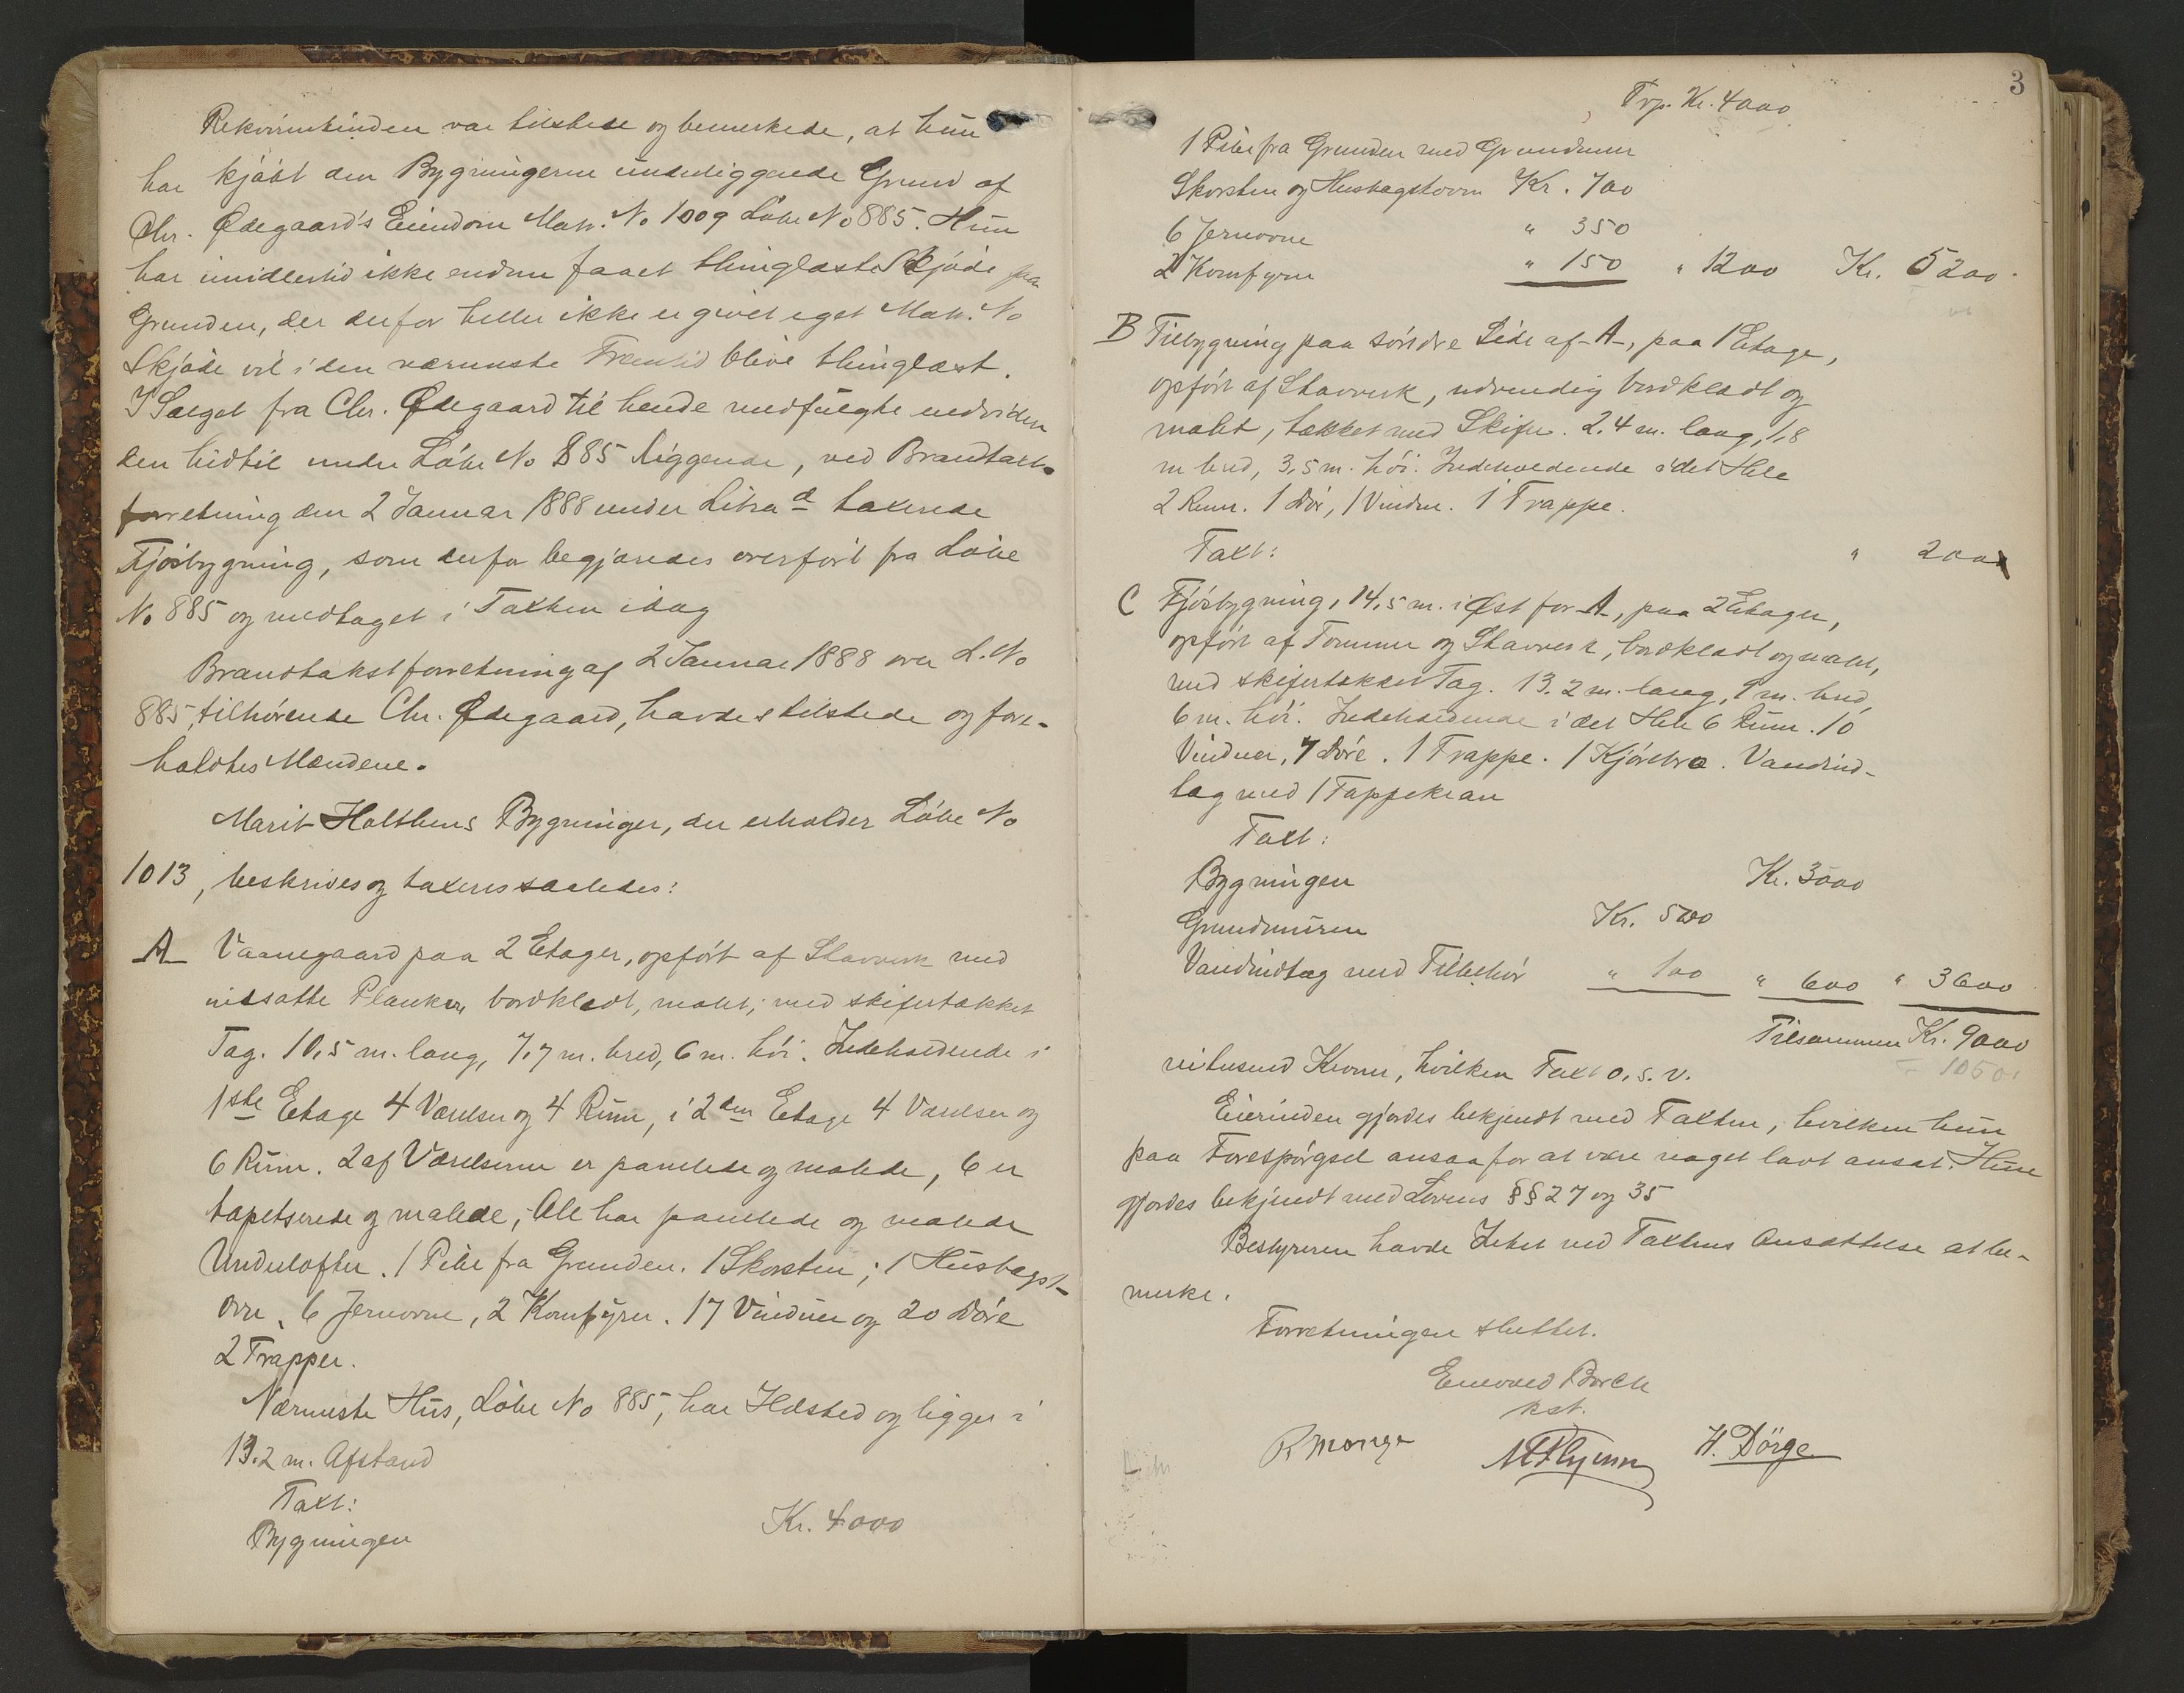 Rekvirentinden var tilstede og bemerkede, at hun
har kjøbt den Bygningerne underliggende Grund af
Chr. Ødegaard's Eiendom Matr. No 1009 Løbe No 885. Hun
har imidlertid ikke endnu faaet thinglæst Skjøde paa
Grunden, der derfor heller ikke er givet eget Matr. No
Skjøde vil i den nærmeste Fremtid blive thinglæst.
I Salget fra Chr. Ødegaard til hende medfulgte endviden
den hidtil under Løbe No 885 liggende, ved Brandtaxt-
forretning den 2 Januar 1888 under Litra d taxerede
Fjøsbygning, som derfor begjæredes overført fra Løbe
No 885 og medtaget i Taxten idag
Brandtakstforretning af 2 Januar 1888 over L. No
885, tilhørende Chr. Ødegaard, havdes tilstede og fore-
holdtes Mændene.
Marit Holthens Bygninger, der erholder Løbe No
1013, beskrives og taxeres saaledes:
A Vaanegaard paa 2 Etager, opført af Stavverk med
nedsatte Planker, bordklædt, malet; med skifertækket
Tag. 10,5 m. lang, 7,7 m. bred, 6 m. høi. Indeholdende i
1ste Etage 4 Værelser og 4 Rum, i 2den Etage 4 Værelser og
6 Rum. 2 af Værelserne er panelede og malede, 6 er
tapetserede og malede; Alle har panelede og malede
Underlofter. 1 Pibe fra Grunden. 1 Skorsten; 1 Husbagst-
ovn, 6 Jernovne, 2 Komfyrer. 17 Vinduer og 20 Døre
2 Trapper.
Nærmeste Hus, Løbe No 885, har Ildsted og ligger i
13.2 m. Afstand
Taxt:
Bygningen Kr. 4000
3
Trp. Kr. 4000
1 Pibe fra Grunden med Grundmur
Skorsten og Husbagstovn Kr. 700
6 Jernovne " 350
2 Komfyrer " 150 " 1200 Kr. 5200
B Tilbygning paa søndre Side af A, paa 1 Etage,
opført af Stavverk, udvendig bordklædt og
malet, tækket med Skifer. 2.4 m. lang, 1,8
m bred, 3,5 m. høi. Indeholdende i det Hele
2 Rum. 1 Dør, 1 Vindu. 1 Trappe.
Taxt: " 200
C Fjøsbygning, 14,5 m. i Øst for A, paa 2 Etager,
opført af Tømmer og Stavverk, bordklædt og malet,
med skifertækket Tag. 13.2 m. lang, 9 m. bred,
6 m. høi. Indeholdende i det Hele 6 Rum. 10
Vinduer, 7 Døre. 1 Trappe. 1 Kjørebro. Vandind-
læg med 1 Tappekran
Taxt:
Bygningen Kr. 3000
Grundmuren Kr. 500
Vandindlæg med Tilbehør " 100 " 600 " 3600
Tilsammen Kr. 9000
nitusend Kroner, hvilken Taxt o. s. v.
Eierinden gjordes bekjendt med Taxten, hvilken hun
paa Forespørgsel ansaa for at være noget lavt ansat. Hun
gjordes bekjendt med Lovens §§ 27 og 35
Bestyreren havde Intet ved Taxtens Ansættelse at be-
merke.
Forretningen sluttet.
Borch
kst.
R Monge M Flyum H. Dörge